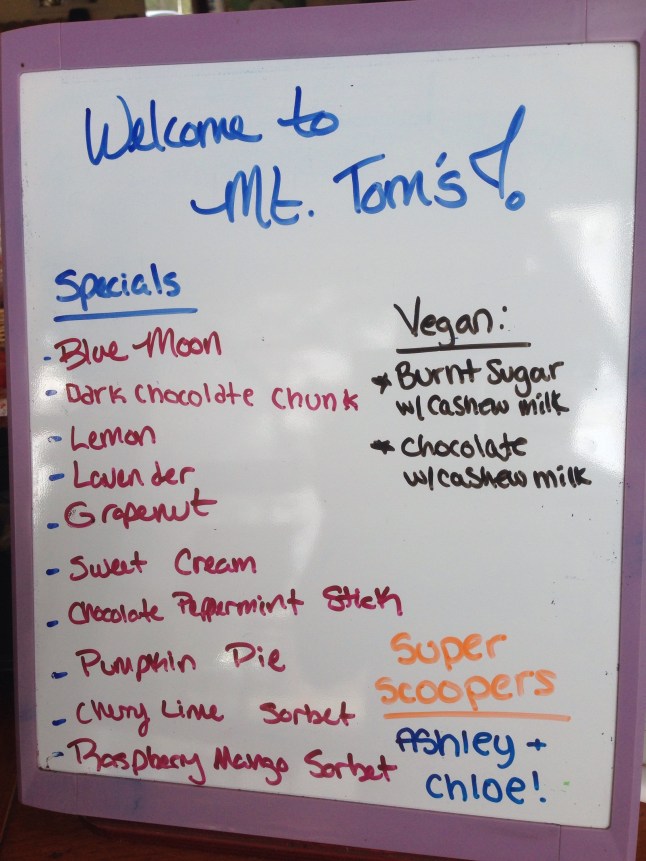 Welcome to
Mt. Tom's!
Specials
- Blue Moon
- Dark Chocolate Chunk
- Lemon
- Lavender
- Grapenut
- Sweet Cream
- Chocolate Peppermint Stick
- Pumpkin Pie
- Cherry Lime Sorbet
- Raspberry Mango Sorbet
Vegan:
* Burnt Sugar
w/cashew milk
* Chocolate
w/cashew milk
Super
Scoopers
Ashley +
Chloe!